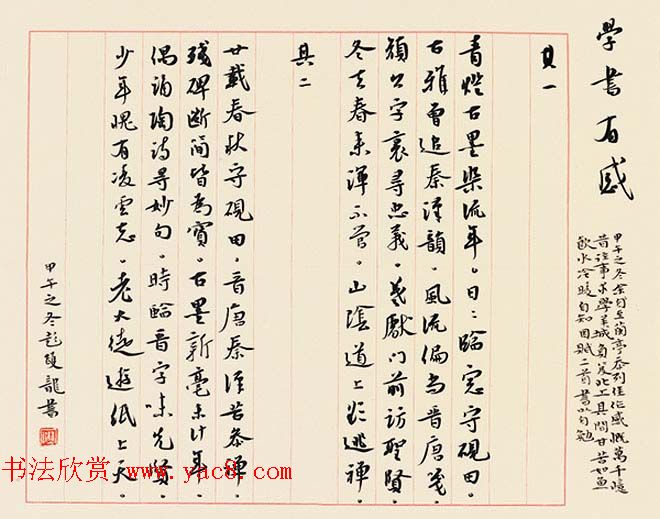 學書有感
甲午之冬余自至蘭亭忝列佳作感慨萬千憶
昔往事求學羊城負笈北上其間甘苦如魚
飲水冷暖自知因賦二首書以自勉
其一
青燈古墨染流年。日〻臨窗守硯田。
古雅曾追秦漢韻。風流偏為晉唐箋。
顏公字裏尋忠義。羲獻門前訪聖賢。
冬去春來渾不管。山陰道上逃禪。
其二
廿載春秋守硯田。晉唐秦漢苦參禪。
殘碑斷簡皆為寶。古墨新毫未計年。
偶誦陶詩尋妙句。時臨晉字味先賢。
少年愧有凌雲志。老大徒遊紙上天。
甲午之冬彭雙龍書
书法欣赏 www.yac8.com